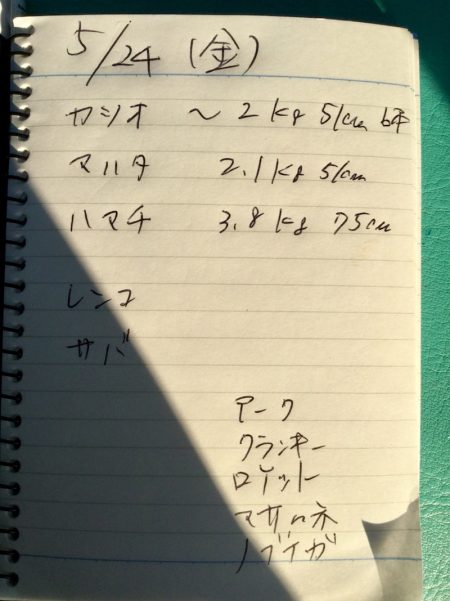 5/24 (金)
カシオ ～2kg 51cm 6本
マハタ 2.1kg 51cm
ハマチ 3.8kg 75cm
レンコ
サバ
アーク
クランキー
ロケット
マサムネ
ノブナガ